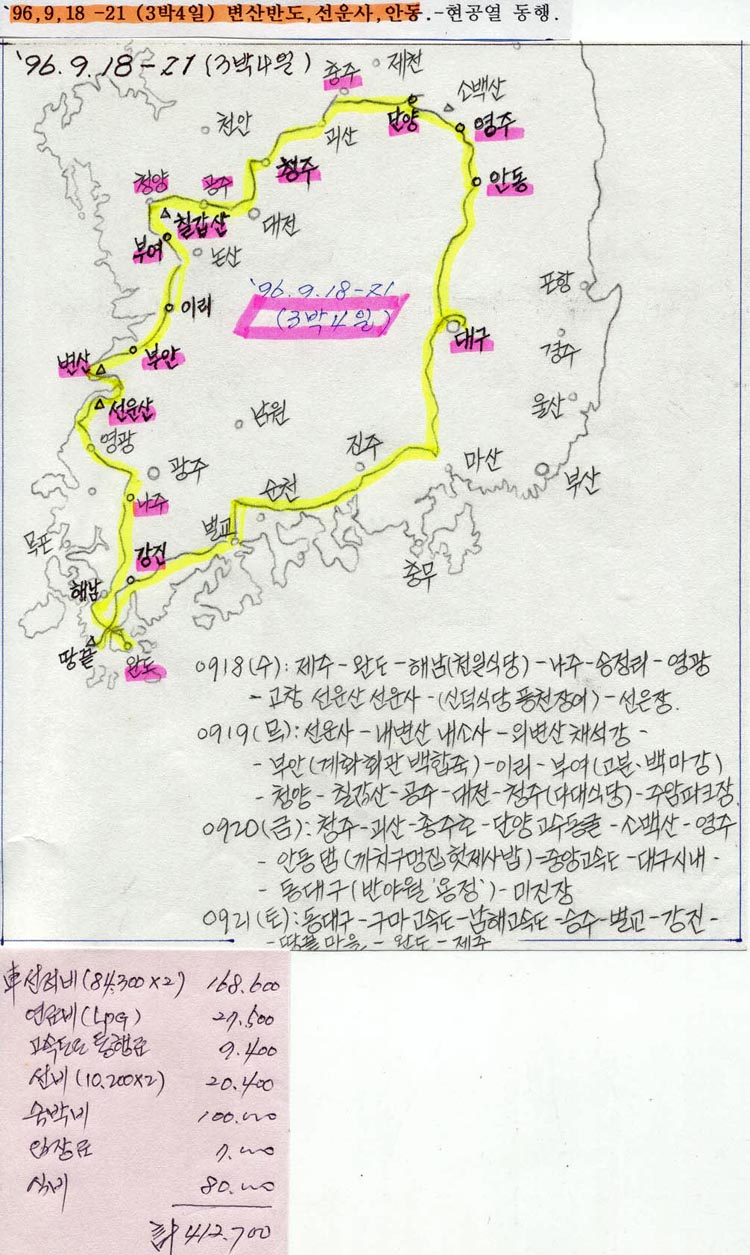 `96,9,18 -21 (3박4일) 변산반도,선운사,안동.-현공열 동행.
'96. 9. 18 - 21 (3박4일)
충주
제천
소백산
천안
괴산
단양
영주
청주
안동
청양
공주
칠갑산
대전
부여
논산
'96. 9. 18 - 21
(3박4일)
포항
이리
대구
경주
변산
부안
선운산
남원
울산
영광
광주
진주
마산
부산
나주
순천
벌교
목포
강진
충무
해남
땅끝
완도
0918(수): 제주 - 완도 - 해남(천일식당) - 나주 - 송정리 - 영광
- 고창 선운산 선운사 - (신덕식당 풍천장어) - 선은장.
0919(목): 선운사 - 내변산 내소사 - 외변산 채석강 -
- 부안(계화회관 백합죽) - 이리 - 부여(고분·백마강)
- 청양 - 칠갑산 - 공주 - 대전 - 청주(다대식당) - 주암파크장.
0920(금): 청주 - 괴산 - 충주호 - 단양 고수동굴 - 소백산 - 영주
- 안동댐(까치구멍집 헛제사밥) = 중앙고속도 - 대구시내 -
- 동대구(반야월 '용정') - 미진장
0921(토): 동대구 - 구마고속도 - 남해고속도 - 승주 - 벌교 - 강진 -
- 땅끝마을 - 완도 - 제주
車선적비(84,300×2) 168.600
연료비(LPG) 27,500
고속도로 통행료 9.400
선비(10.200×2) 20.400
숙박비 100.000
입장료 7.000
식비 80.000
計 412.700